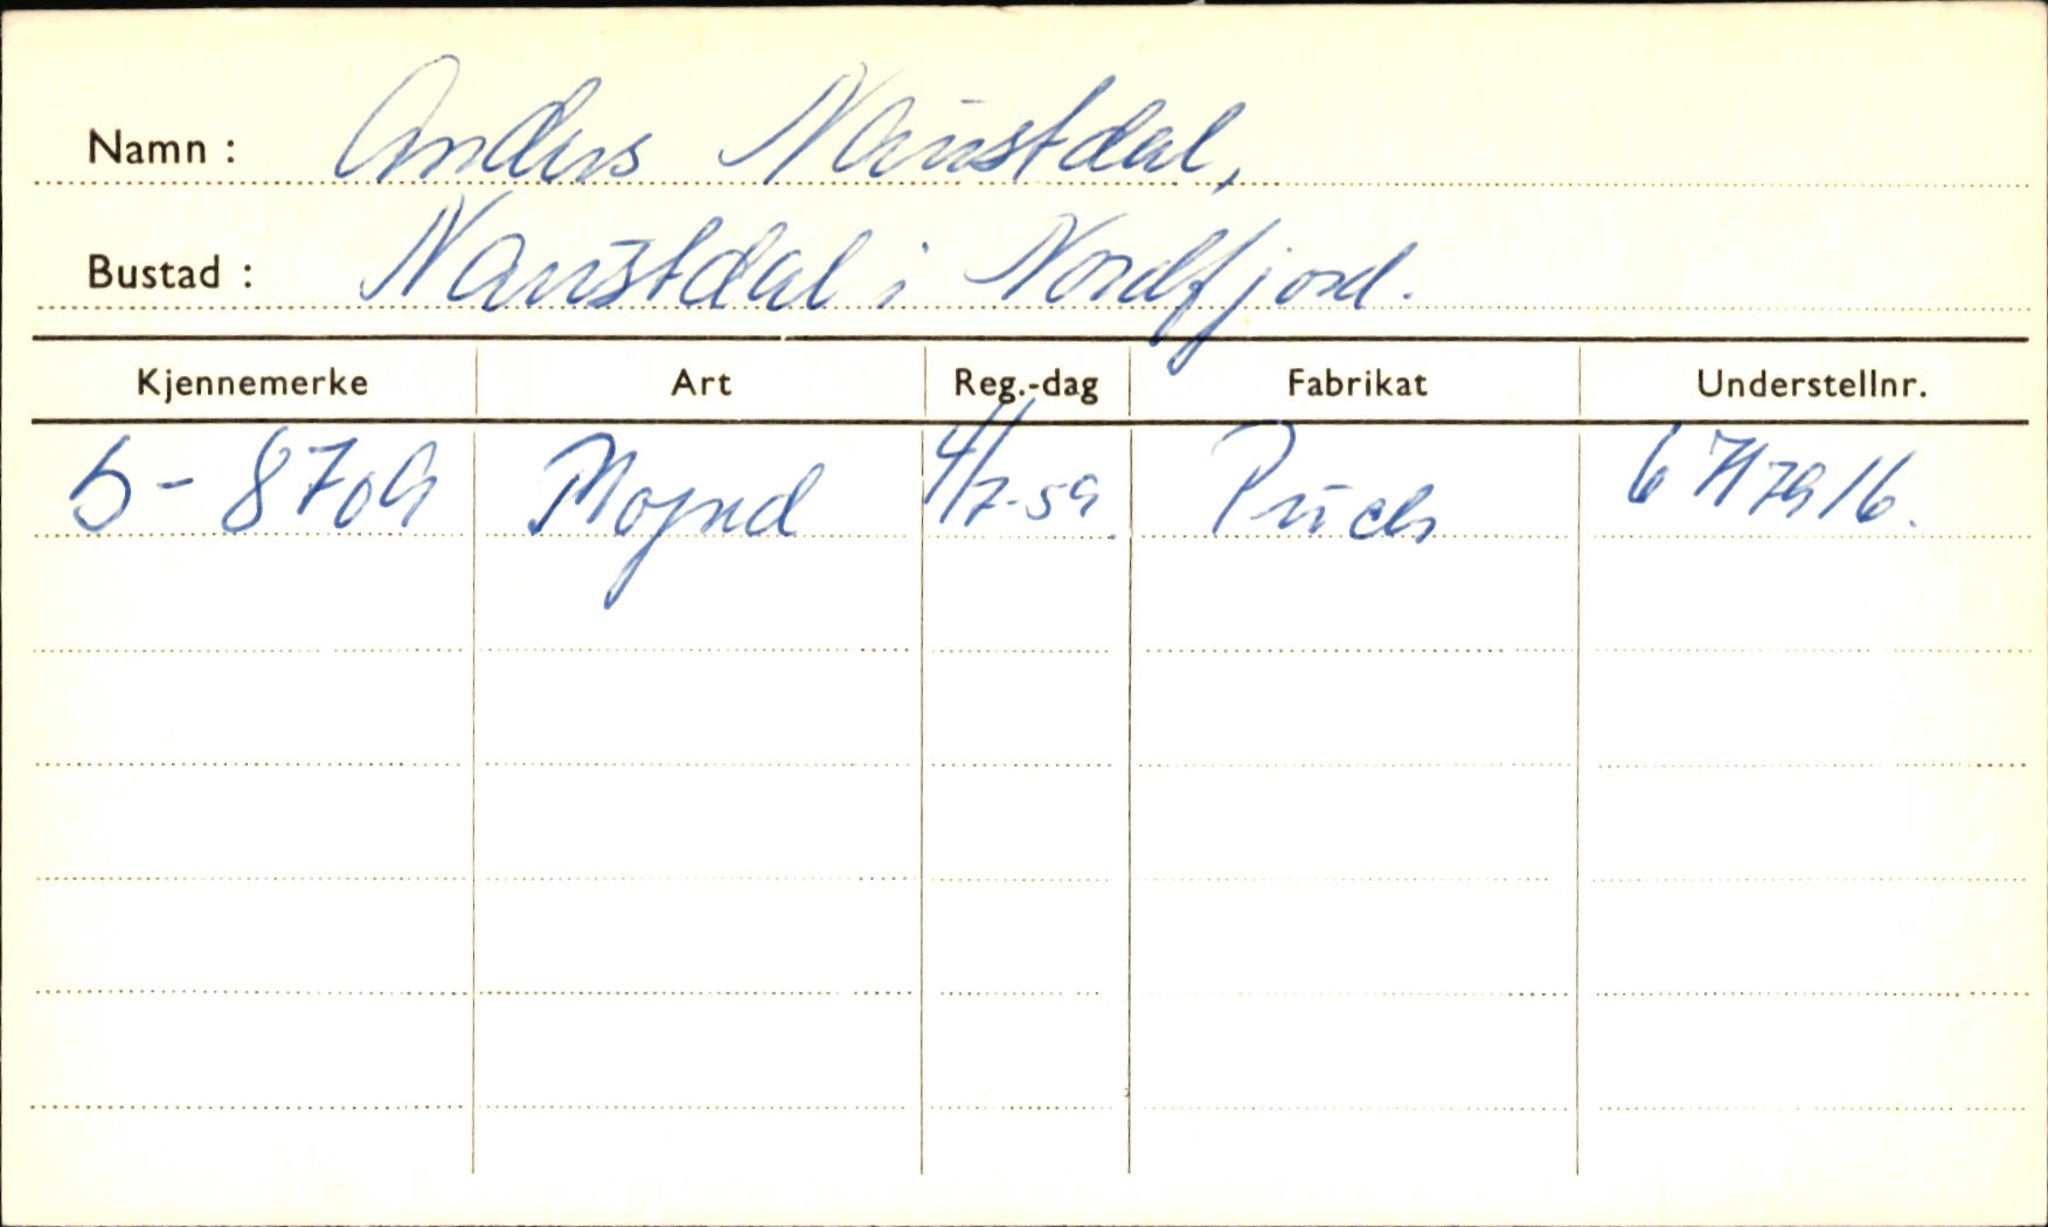 Namn : Anders Naustdal,
Bustad : Naustdal i Nordfjord.
Kjennemerke Art Reg.-dag Fabrikat Understellnr.
S- 8709 Moped 4/7-59. Puch